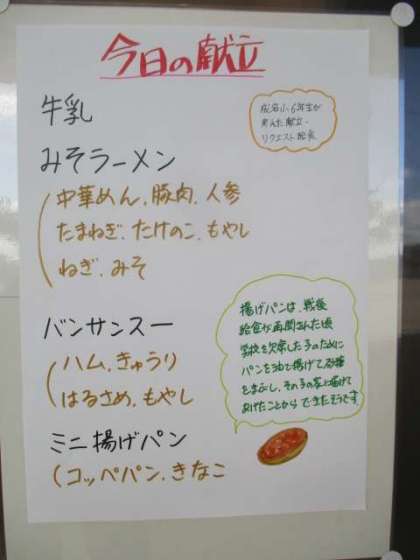 今日の献立
牛乳
小6年生が
考えた献立・
リクエスト給食
みそラーメン
中華めん、豚肉、人参
たまねぎ、たけのこ、もやし
ねぎ、みそ
バンサンスー
ハム、きゅうり
はるさめ、もやし
揚げパンは、戦後
給食が再開された頃
学校を欠席した子のために
パンを油で揚げて砂糖
をまぶし、その子の家に届けて
あげたことからできたそうです
ミニ揚げパン
コッペパン、きなこ